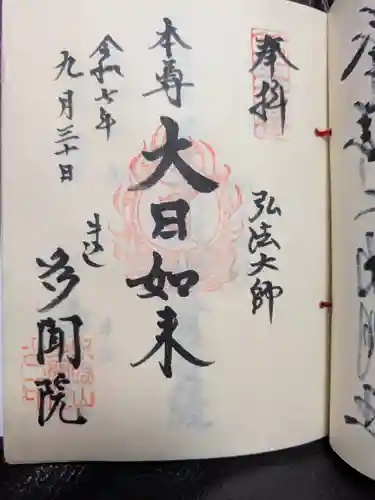 奉拝
弘法大師
本尊
大日如来
令和七年
九月三十日
多聞院